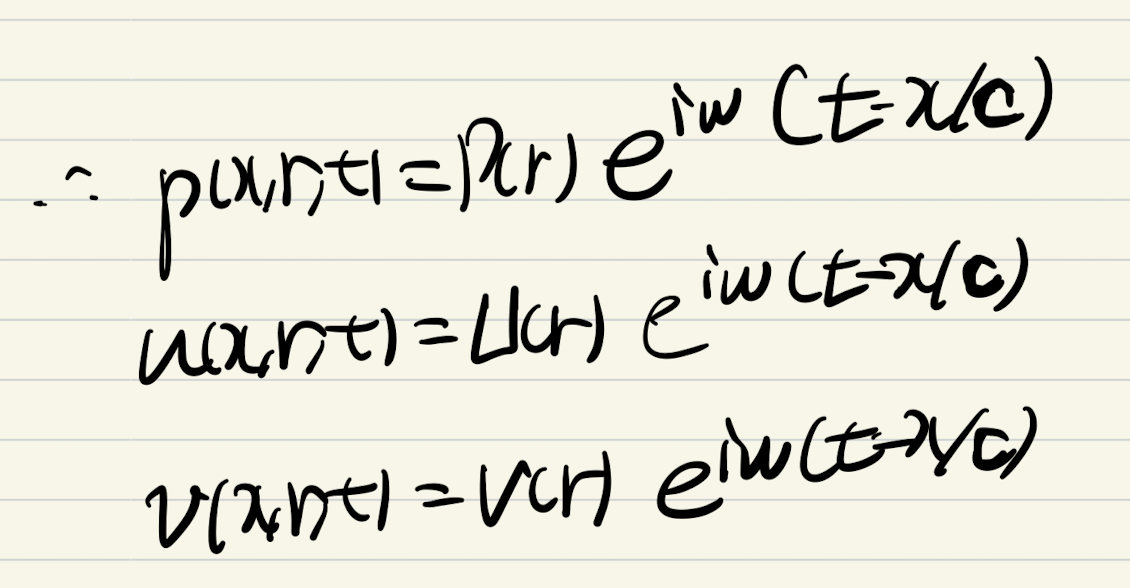 ∴ p(x,r,t) = P(r) e^{iω(t-x/c)}
u(x,r,t) = U(r) e^{iω(t-x/c)}
v(x,r,t) = V(r) e^{iω(t-x/c)}